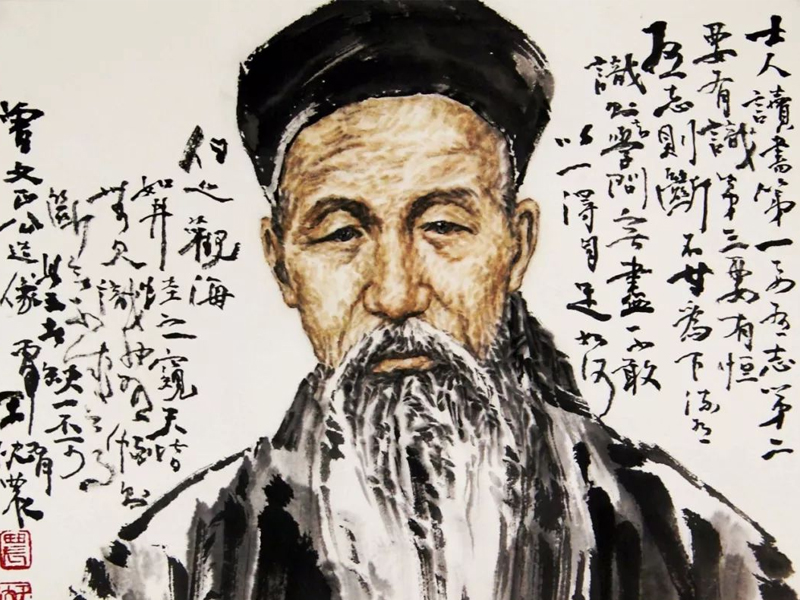 士人讀書第一要有志第二
要有識第三要有恒
有志則斷不甘為下流有
識則知學問無盡不敢
以一得自足如河
伯之觀海
如井蛙之窺天皆
無識也有恒則
斷無不成之事
此三者缺一不可
曾文正公造像